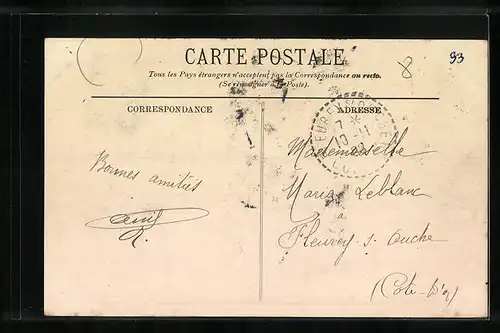 CARTE POSTALE
93
8
Tous les Pays étrangers n'acceptent pas la Correspondance au recto.
(Se renseigner à la Poste).
CORRESPONDANCE
ADRESSE
7 *
10 - 11
Bonnes amitiés
Mademoiselle
Maria Leblanc
à
Fleurey-s-Ouche
(Côte-d'or)